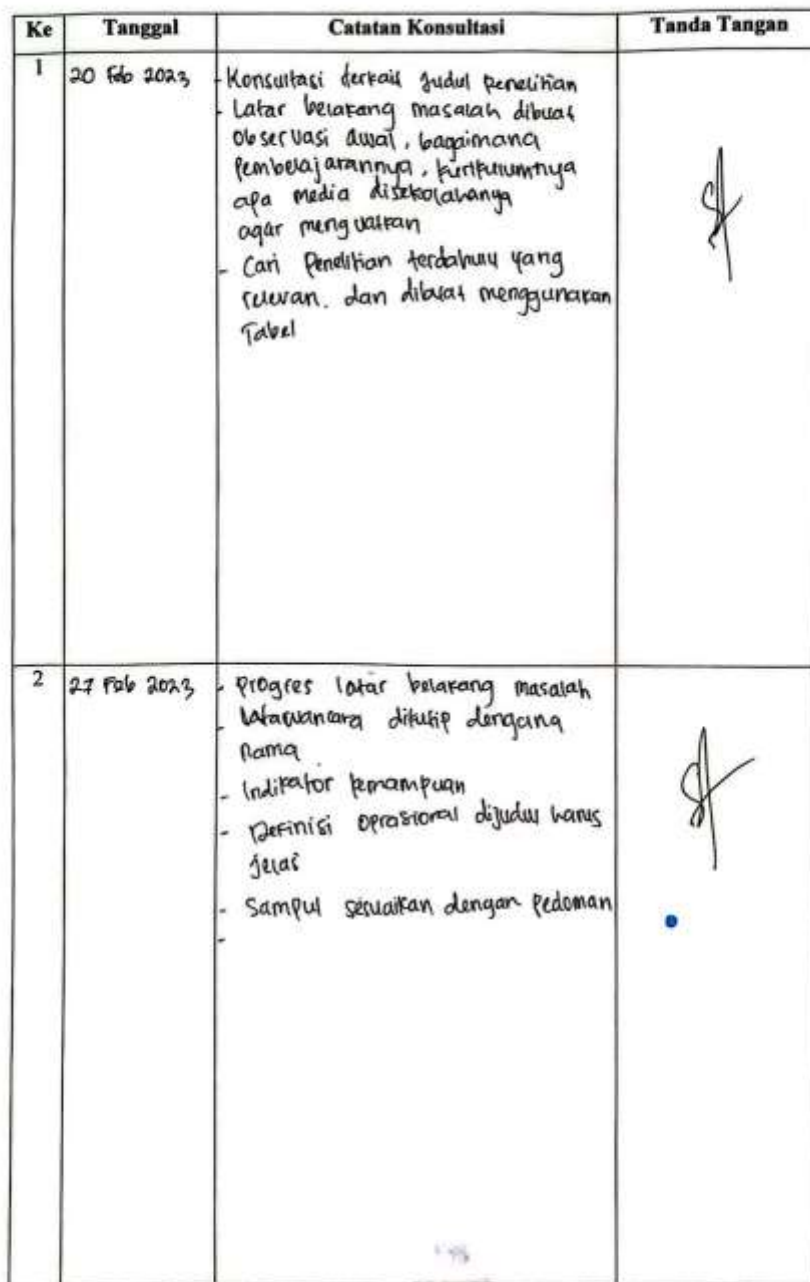 Ke Tanggal Catatan Konsultasi Tanda Tangan
1 20 Feb 2023 - Konsultasi terkait judul penelitian
- Latar belakang masalah dibuat
observasi awal, bagaimana
Pembelajarannya, kurikulumnya
apa media disekolahanya
agar menguatkan
- Cari Penelitian terdahulu yang
relevan. dan dibuat menggunakan
Tabel
2 27 Feb 2023 - Progres latar belakang masalah
- Wawancara dikutip dengana
nama
- Indikator kemampuan
- Definisi oprasional dijudul harus
jelas
- Sampul sesuaikan dengan pedoman
-